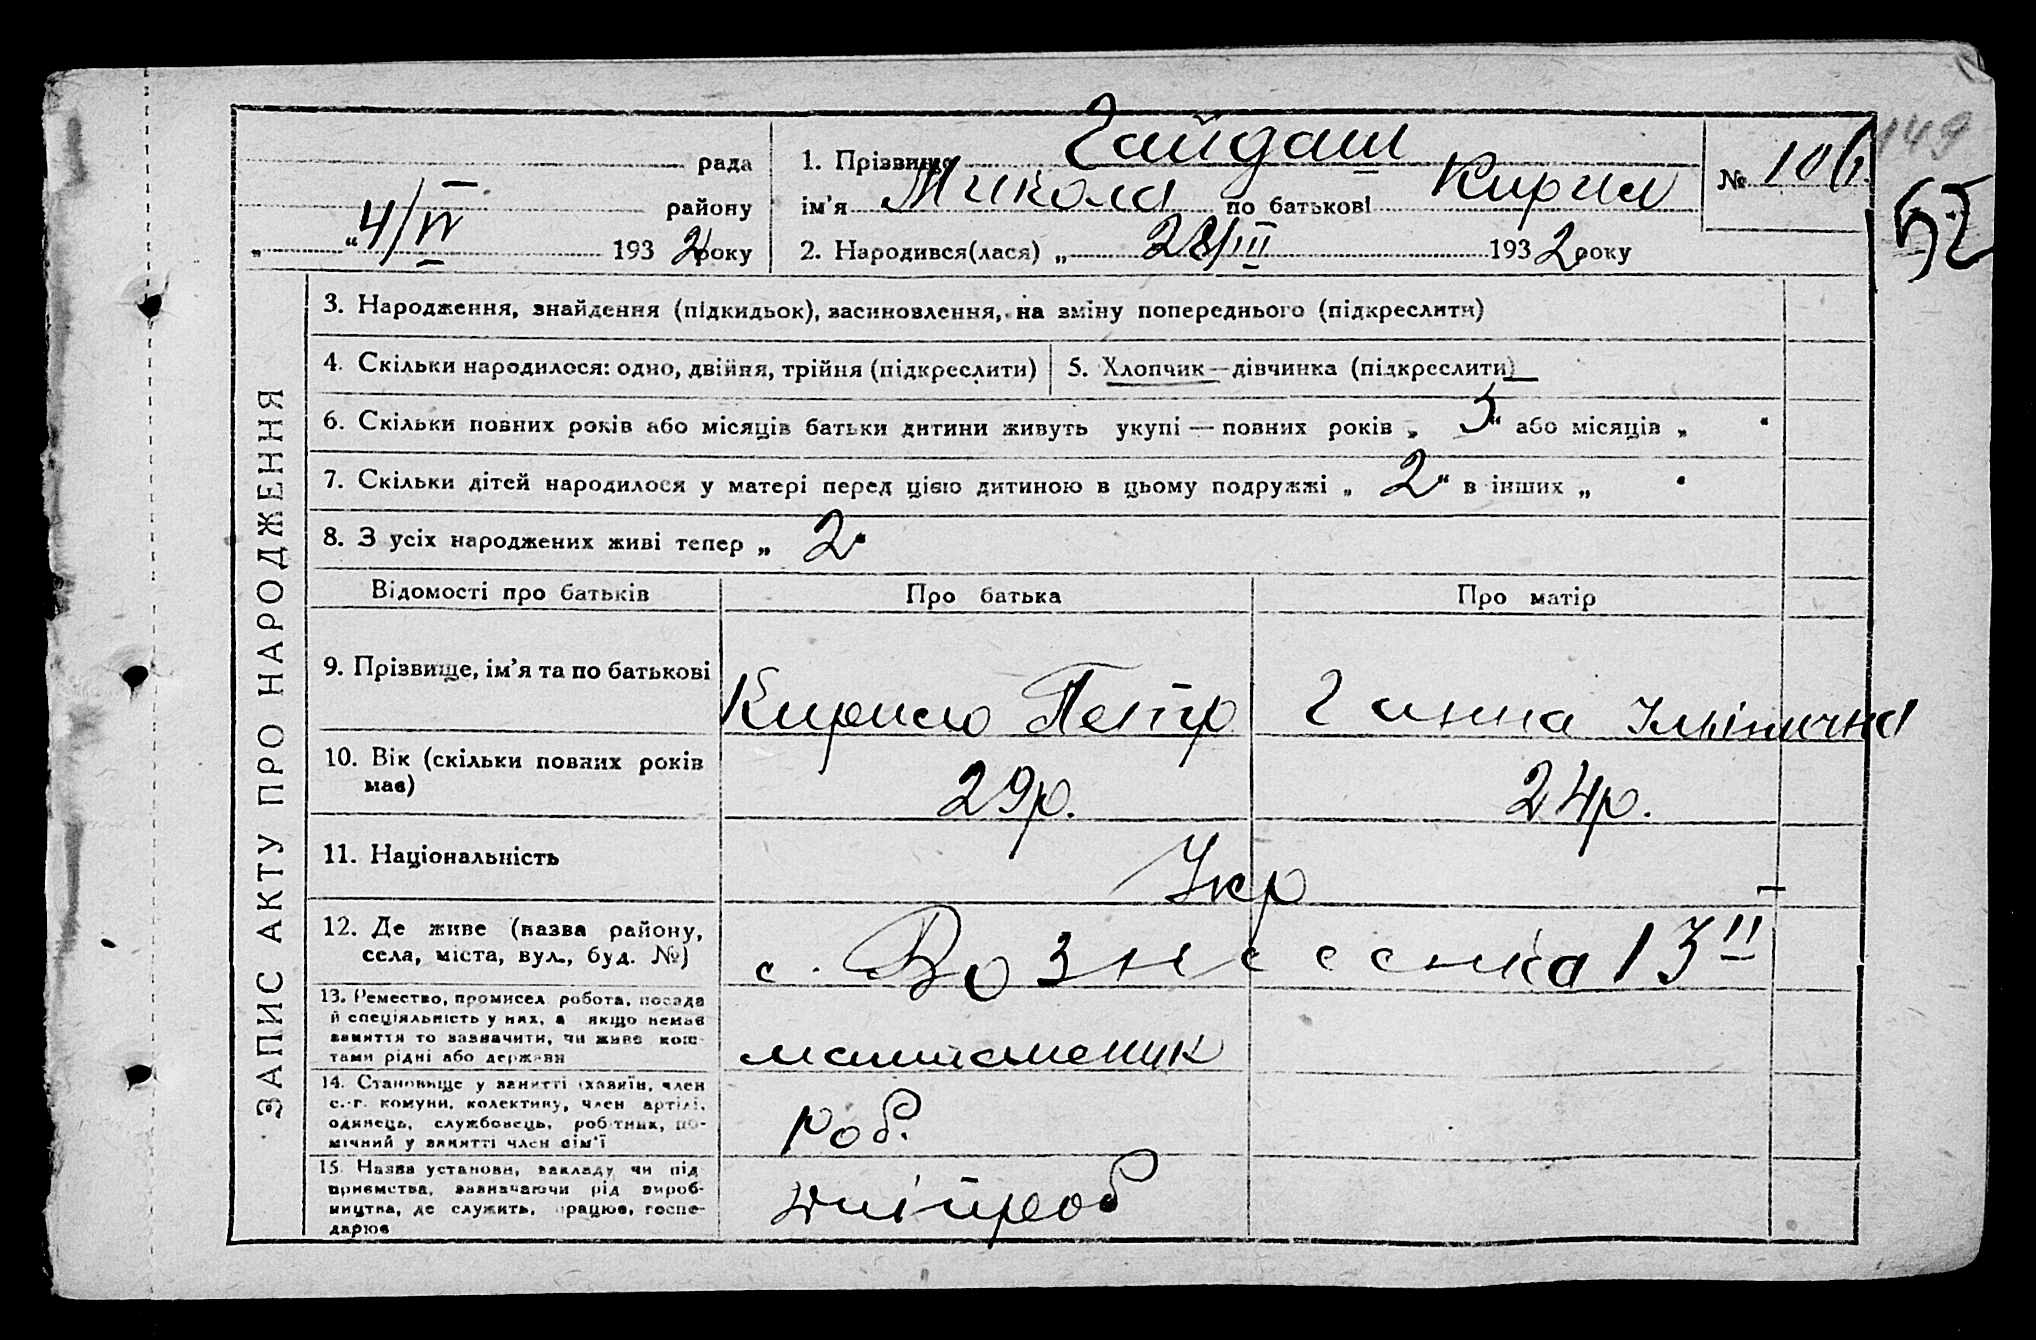 149
рада
1. Прізвище Гайдаш
№ 106
52
району
ім'я Микола по батькові Кирил
„ “ 4/IV 1932 року
2. Народився(лася) „ 28/III 1932 року
ЗАПИС АКТУ ПРО НАРОДЖЕННЯ
3. Народження, знайдення (підкидьок), засиновлення, на зміну попереднього (підкреслити)
4. Скільки народилося: одно, двійня, трійня (підкреслити)
5. Хлопчик—дівчинка (підкреслити)
6. Скільки повних років або місяців батьки дитини живуть укупі — повних років „ 5 “ або місяців „ “
7. Скільки дітей народилося у матері перед цією дитиною в цьому подружжі „ 2 “ в інших „ “
8. З усіх народжених живі тепер „ 2 “
Відомості про батьків
Про батька
Про матір
9. Прізвище, ім'я та по батькові
Кирило Петр
Ганна Іллінична
10. Вік (скільки повних років
має)
29р.
24р.
11. Національність
Укр
12. Де живе (назва району,
села, міста, вул., буд. №)
с. Вознесенка 13
13. Ремество, промисел робота, посада
й спеціяльність у них, а якщо немає
заняття то зазначити, чи живе кош-
тами рідні або держави
14. Становище у занятті (хазяїн, член
с.-г. комуни, колективу, член артілі,
одинець, службовець, робітник, по-
мічний у занятті член сім'ї
роб.
15. Назва установи, закладу чи під
приємства, зазначаючи рід вироб-
ництва, де служить, працює, госпо-
дарює